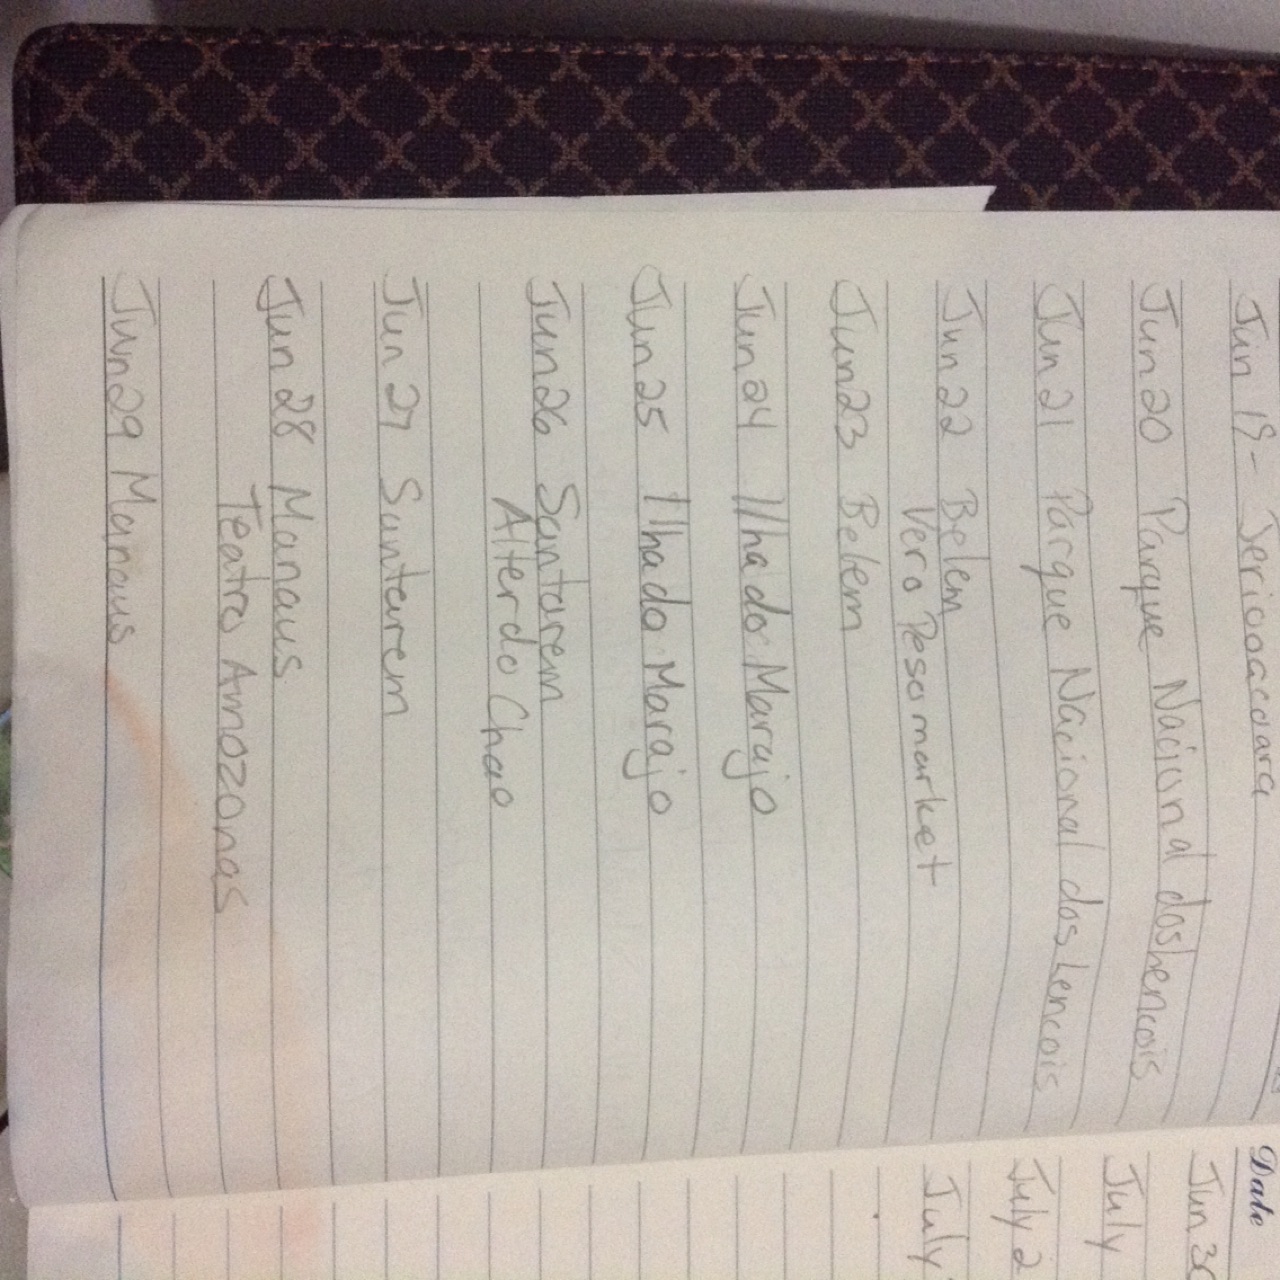 Jun 19- Jericoacoara
Jun 20 Parque Nacional dos Lencois
Jun 21 Parque Nacional dos Lencois
Jun 22 Belem
Vero Peso market
Jun 23 Belem
Jun 24 Ilha do Marajo
Jun 25 Ilha do Marajo
Jun 26 Santarem
Alter do Chao
Jun 27 Santarem
Jun 28 Manaus
Teatro Amazonas
Jun 29 Manaus
Date
Jun 30
July
July 2
July